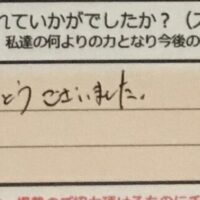 れていかがでしたか？
私達の何よりの力となり今後の
とうございました。